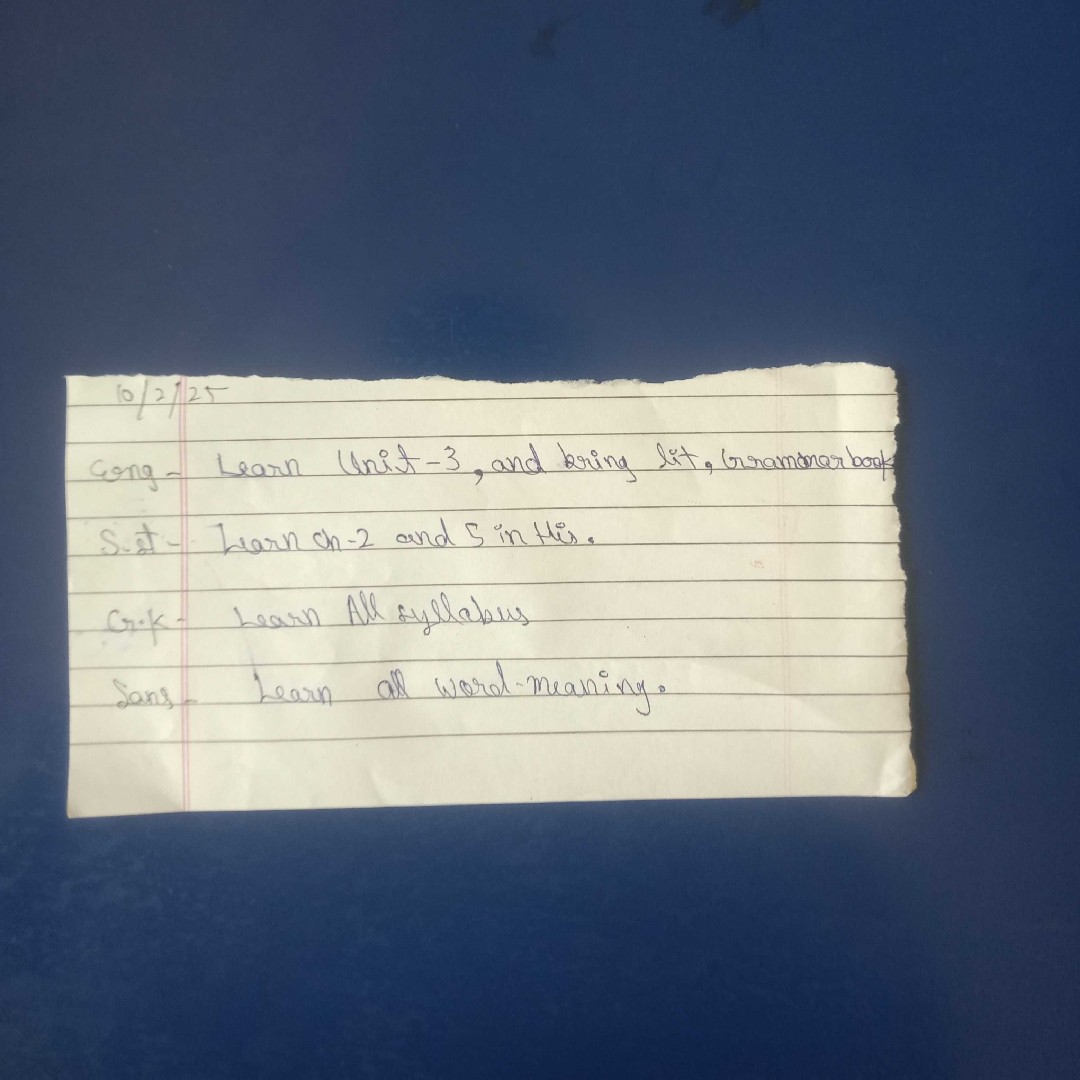 10/2/25
Eng - Learn Unit-3, and bring lit, Grammar book
S.st - Learn ch-2 and 5 in His.
G.K - Learn All syllabus
Sans - Learn all word-meaning.